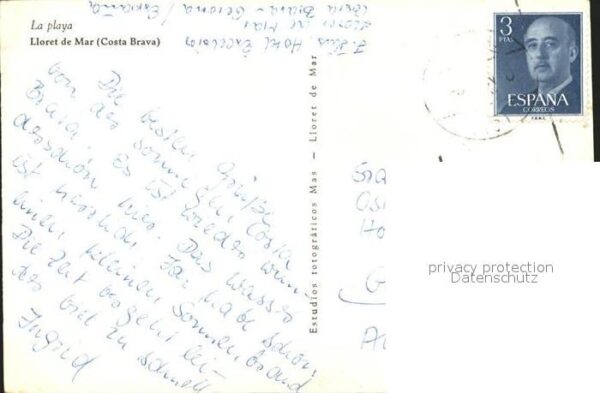 La playa
Lloret de Mar (Costa Brava)
Hotel Excelsior
Lloret de Mar
Costa Brava - Gerona / España
Die besten Grüße
von der sonnigen Costa
Brava. Es ist wieder wun-
derschön hier. Das Wasser
ist herrlich. Ich hab schon
einen kleinen Sonnenbrand
Die Zeit vergeht lei-
der viel zu schnell
Ingrid
Estudios fotográficos Mas — Lloret de Mar
3
PTAS
ESPAÑA
CORREOS
privacy protection
Datenschutz